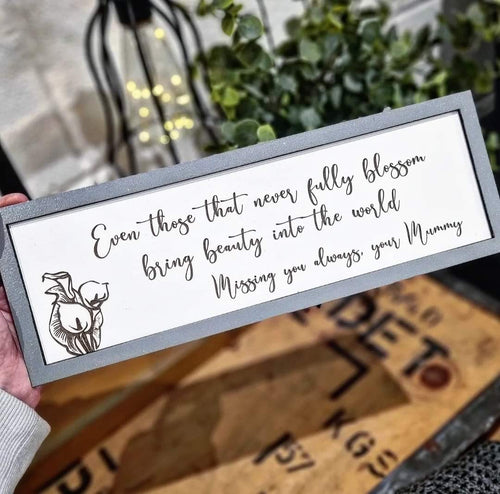 Even those that never fully blossom
bring beauty into the world
Missing you always, your Mummy
DET
KGS
57